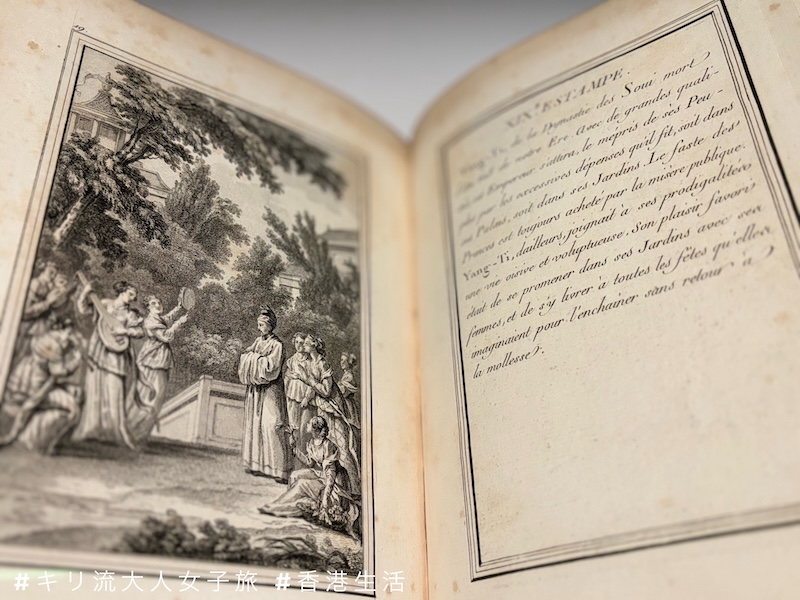 19.
XIX.e ESTAMPE.
Yang-Ti, de la Dynastie des Soui mort
l'an 616 de notre Ere. Avec de grandes quali-
tés cet Empereur s'attira le mépris de ses Peu-
ples par les excessives dépenses qu'il fit, soit dans
ses Palais, soit dans ses Jardins. Le faste des
Princes est toujours acheté par la misère publique.
Yang-Ti, d'ailleurs, joignait à ses prodigalités
une vie oisive et voluptueuse. Son plaisir favori
était de se promener dans ses Jardins avec ses
femmes, et de s'y livrer a toutes les fêtes qu'elles
imaginaient pour l'enchainer sans retour à
la mollesse.
#キリ流大人女子旅 #香港生活